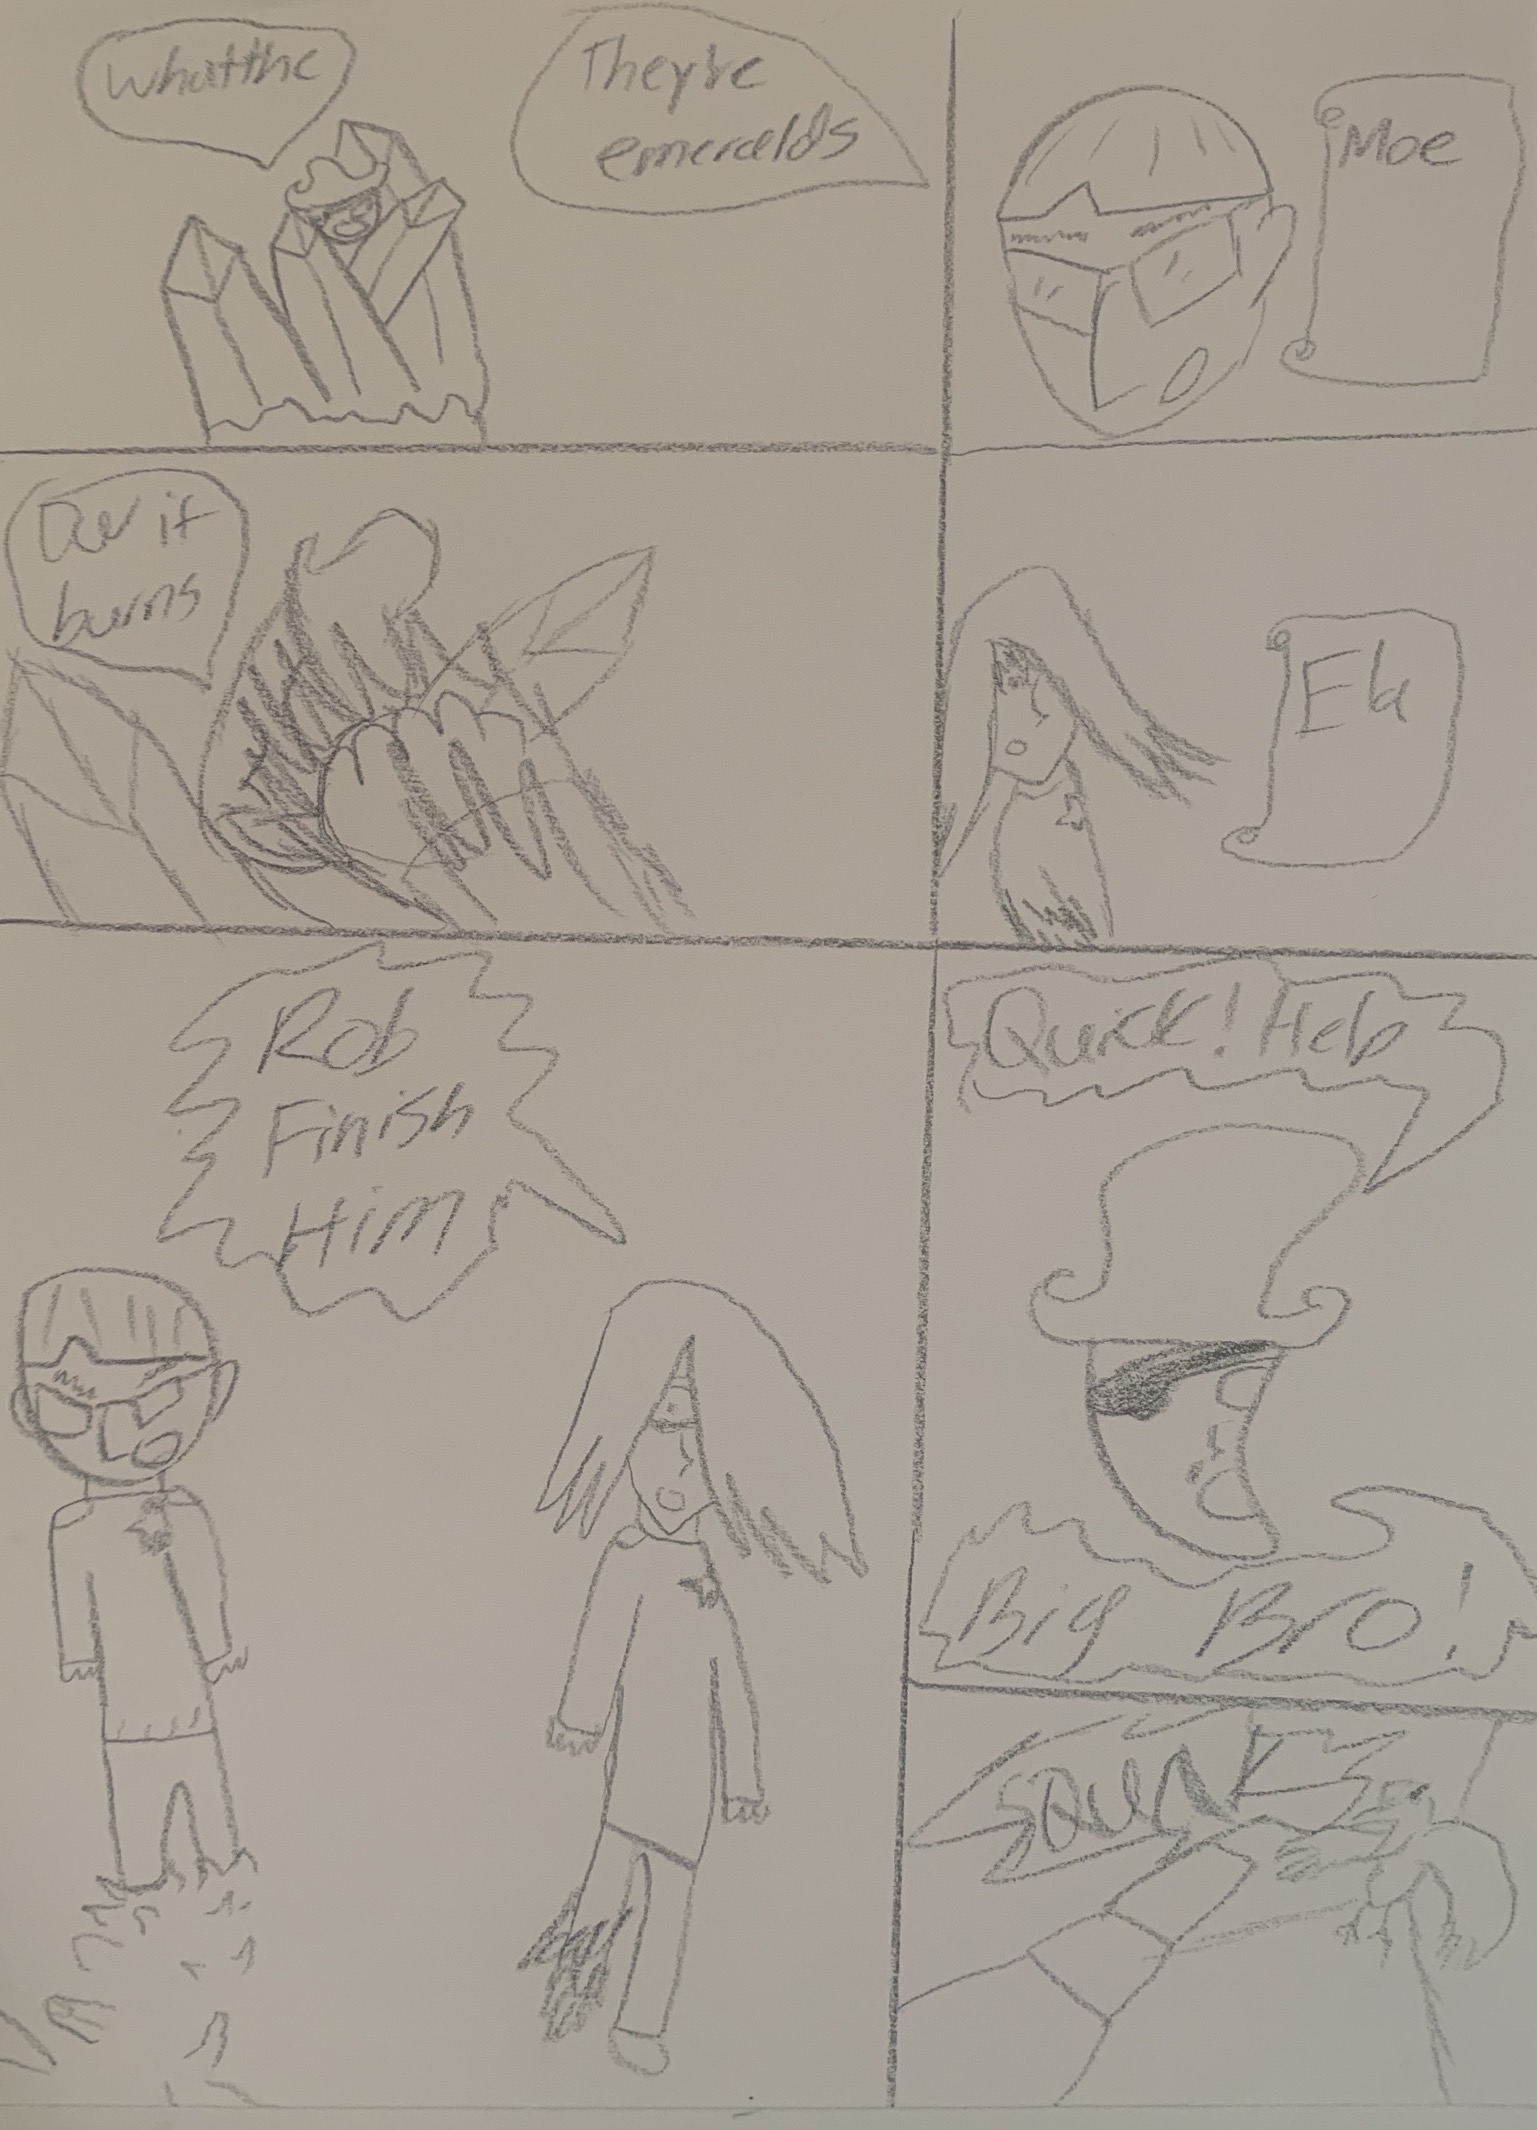 What the
They're
emeralds
Moe
Ow it
burns
Ela
Rob
Finish
Him
Quick! Help
Big Bro!